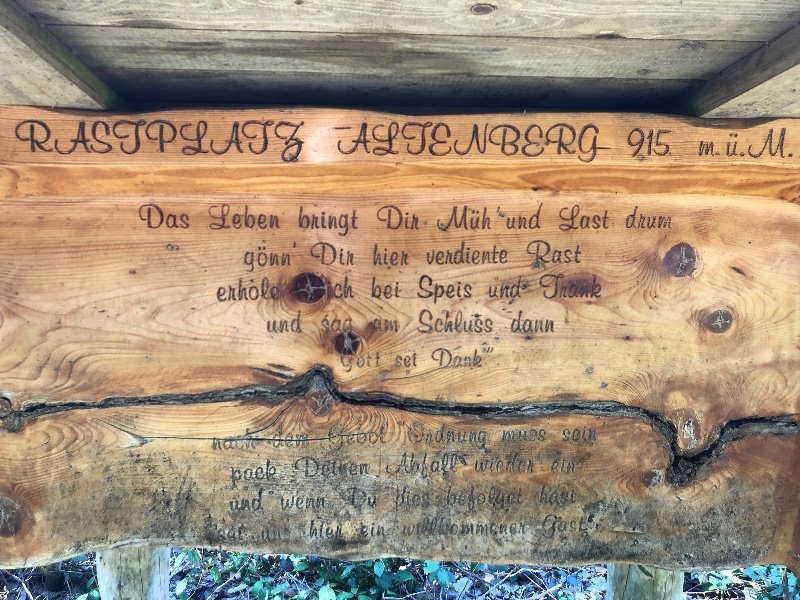 RASTPLATZ - ALTENBERG 915 m.ü.M.
Das Leben bringt Dir Müh' und Last drum
gönn' Dir hier verdiente Rast
erhole Dich bei Speis und Trank
und sag am Schluss dann
"Gott sei Dank"
nach dem Gebot "Ordnung muss sein"
pack Deinen Abfall wieder ein
und wenn Du dies befolget hast
sei uns hier ein willkommener Gast.